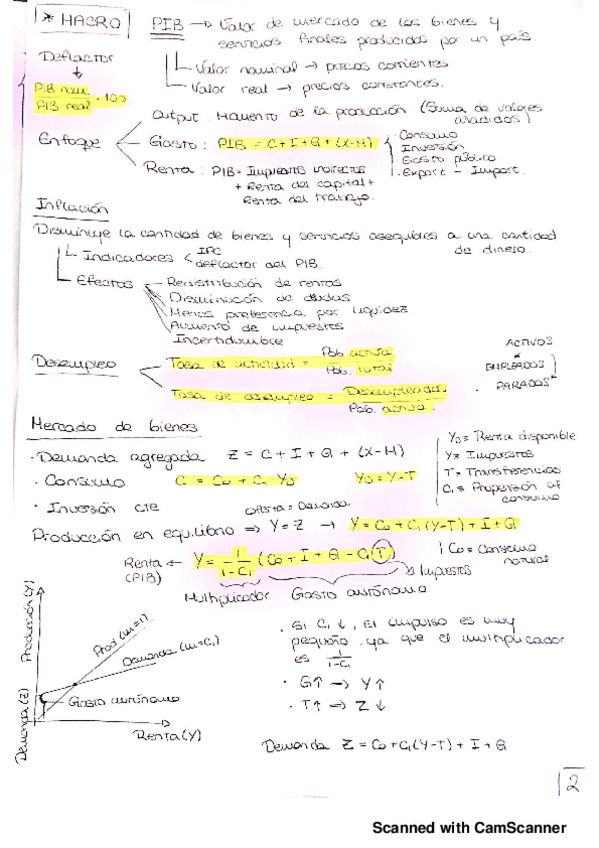 * MACRO
PIB → Valor de mercado de los bienes y
servicios finales producidos por un país.
Valor nominal → precios corrientes
Valor real → precios constantes.
Deflactor
PIB nom / PIB real · 100
Enfoque
Output: Momento de la producción (Suma de valores
añadidos)
Gasto: PIB = C + I + G + (X-M)
· Consumo
Inversión
Gasto público
· Export - Import.
Renta: PIB = Impuestos indirectos
+ Renta del capital +
Renta del trabajo.
Inflación
Disminuye la cantidad de bienes y servicios asequibles a una cantidad
de dinero.
Indicadores < IPC
deflactor del PIB.
Efectos
Redistribución de rentas
Disminución de deudas
Menos preferencia por liquidez
Aumento de impuestos
Incertidumbre
Desempleo
Tasa de actividad = Pob. activa / Pob. total
Tasa de desempleo = Desempleados / Pob. activa.
ACTIVOS
EMPLEADOS
PARADOS
Mercado de bienes
· Demanda agregada Z = C + I + G + (X-M)
· Consumo C = C0 + C1 YD YD = Y-T
· Inversión cte
YD = Renta disponible
Y = Impuestos
T = Transferencias
C1 = Propensión al
consumo
Oferta = Demanda
Producción en equilibrio ⇒ Y=Z → Y = C0 + C1 (Y-T) + I + G
C0 = Consumo
natural
Renta ← Y = 1/1-C1 (C0 + I + G - C1 T)
(PIB)
Impuestos
Multiplicador Gasto autónomo
Producción (Y)
Demanda (Z)
Prod (m=1)
Demanda (m=C1)
Gasto autónomo
Renta (Y)
· Si C1 ↓, El impulso es muy
pequeño ya que el multiplicador
es 1/1-C1
· G↑ → Y↑
· T↑ → Z↓
Demanda Z = C0 + C1 (Y-T) + I + G
2
Scanned with CamScanner